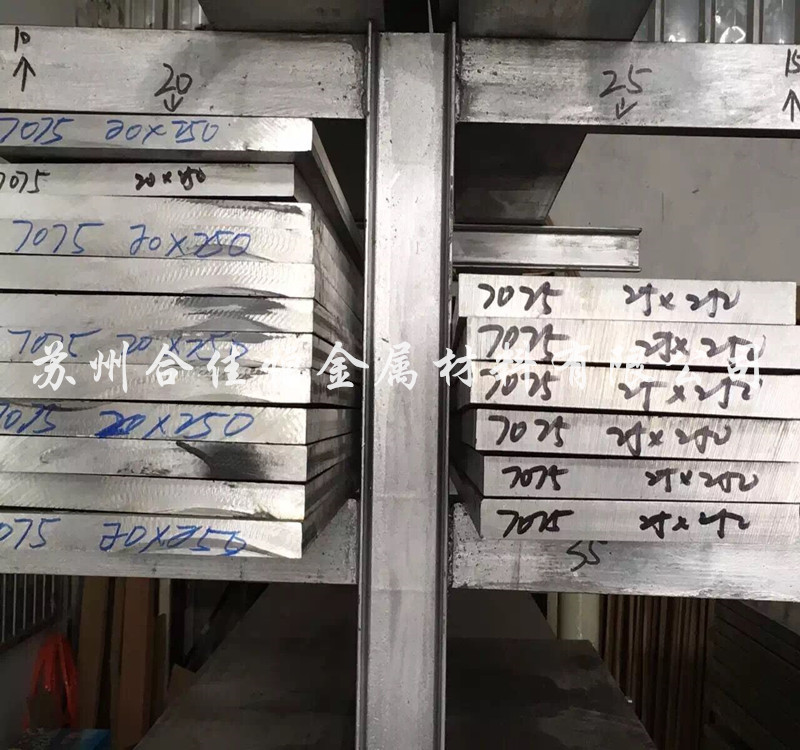 10
20
25
15
7075 20×250
7075 20×250
7075 20×250
7075 20×250
7075 20×250
7075 20×250
7075 25×250
7075 25×250
7075 25×250
7075 25×250
7075 25×250
7075 25×250
苏州合佳 金属材料有限公司
55